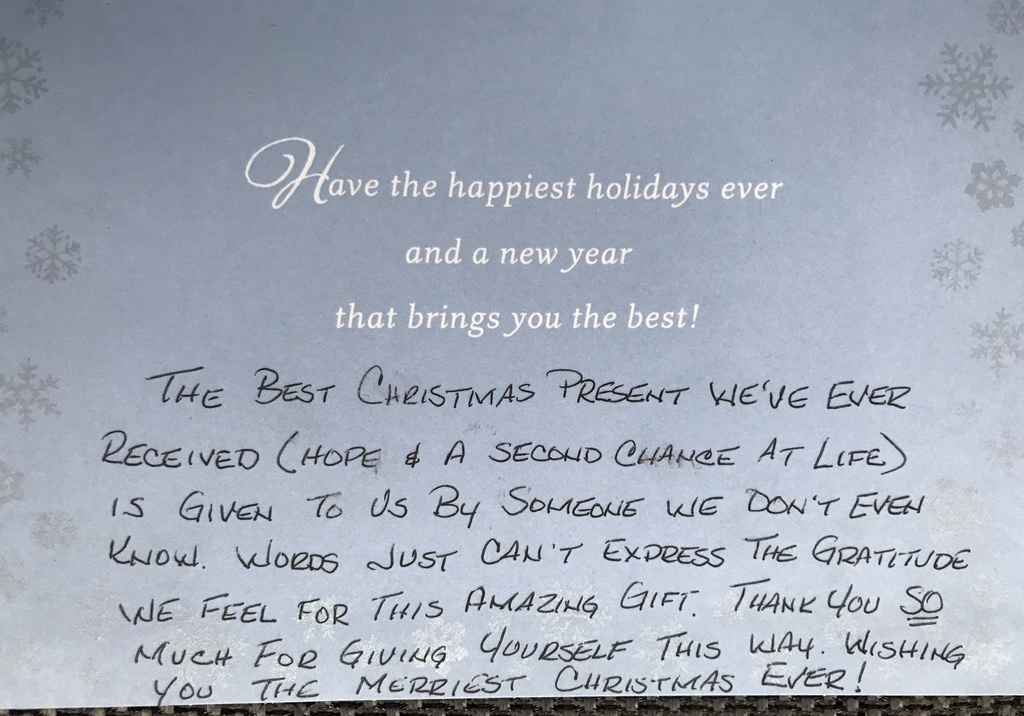 Have the happiest holidays ever
and a new year
that brings you the best!
THE BEST CHRISTMAS PRESENT WE'VE EVER
RECEIVED (HOPE & A SECOND CHANCE AT LIFE)
IS GIVEN TO US BY SOMEONE WE DON'T EVEN
KNOW. WORDS JUST CAN'T EXPRESS THE GRATITUDE
WE FEEL FOR THIS AMAZING GIFT. THANK YOU SO
MUCH FOR GIVING YOURSELF THIS WAY. WISHING
YOU THE MERRIEST CHRISTMAS EVER!